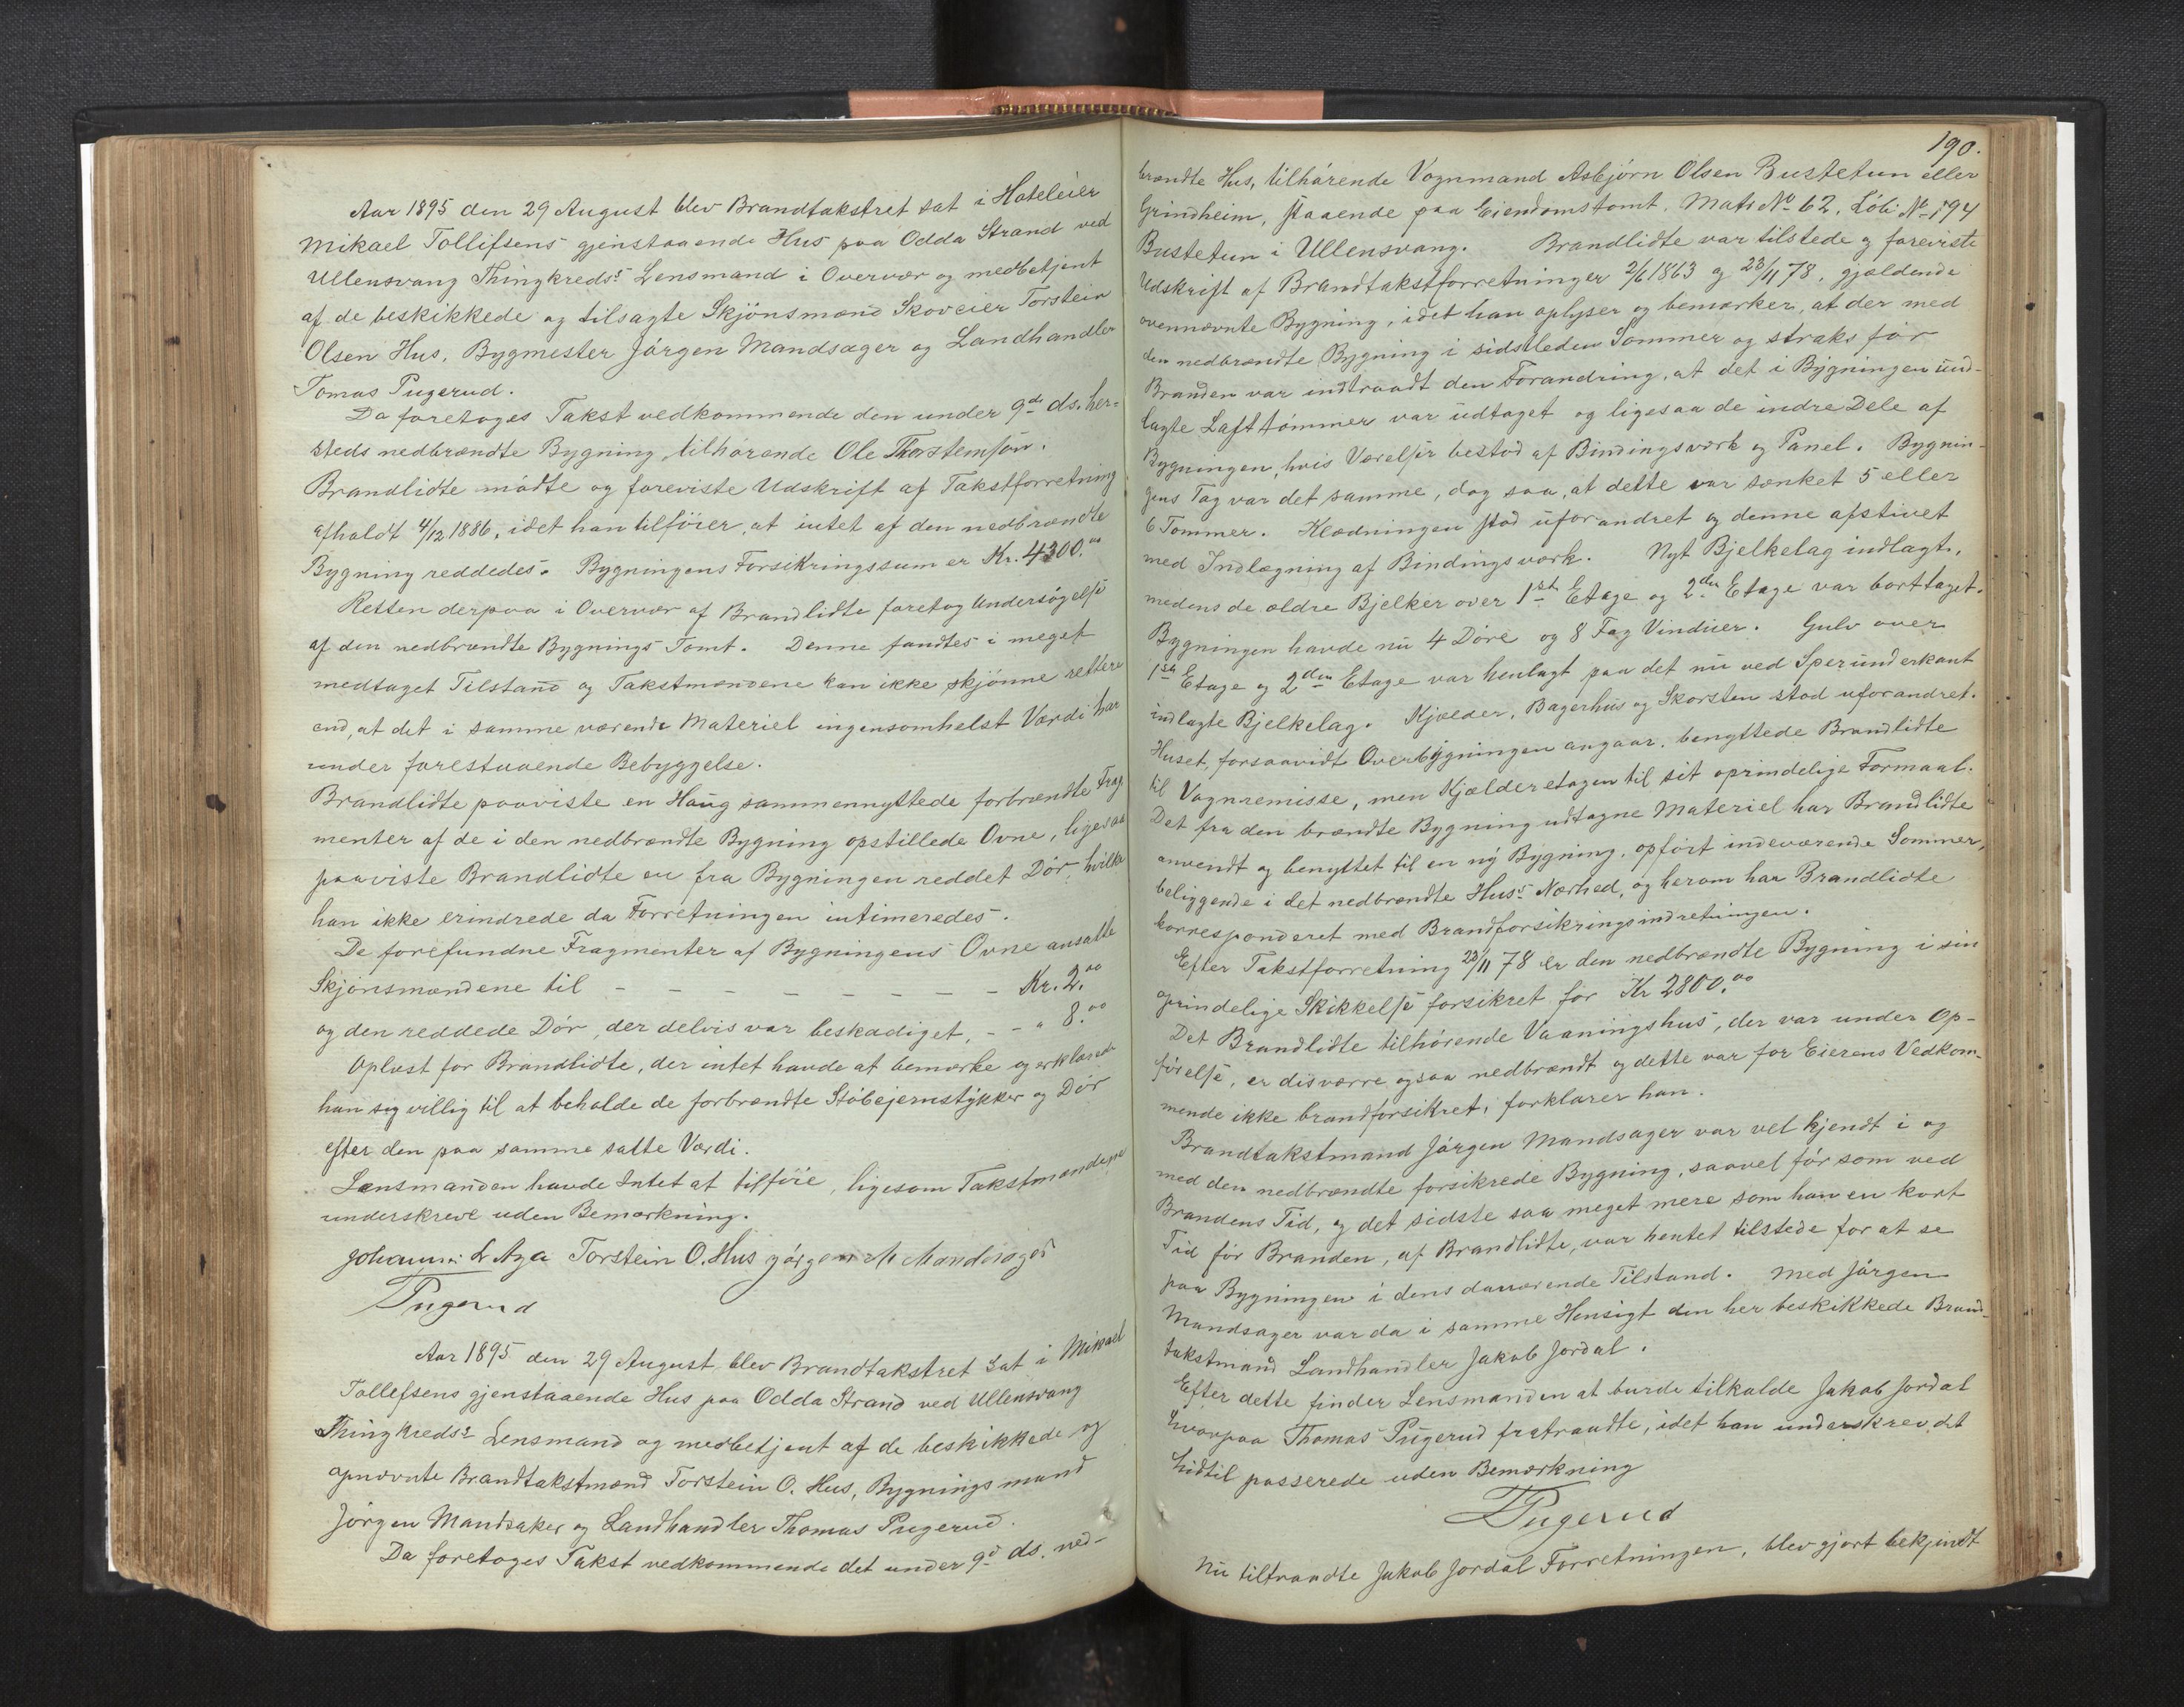 Aar 1895 den 29 August blev Brandtakstret sat i Hoteleier
Mikael Tollefsens gjenstaaende Hus paa Odda Strand ved
Ullensvang Thingkreds's Lensmand i Overvær og medbetjent
af de beskikkede og tilsagte Skjönsmænd Skoveier Torstein
Olsen Hus, Bygmester Jörgen Mandsager og Landhandler
Tomas Pugerud.
Da foretoges Takst vedkommende den under 9de ds. her-
steds nedbrændte Bygning, tilhörende Ole Thorstensøn.
Brandlidte mödte og foreviste Udskrift af Takstforretning
afholdt 4/12 1886, idet han tilföier, at intet af den nedbrændte
Bygning reddedes. Bygningens Forsikringssum er Kr. 4300.00
Retten derpaa i Overvær af Brandlidte foretog Undersögelse
af den nedbrændte Bygnings Tomt. Denne fandtes i meget
medtaget Tilstand og Takstmændene kan ikke skjönne rettere
end, at det i samme værende Materiel ingensomhelst Værdi har
under forestaaende Bebyggelse.
Brandlidte paaviste en Haug sammennyttede forbrændte Frag-
menter af de i den nedbrændte Bygning opstillede Ovne, ligesaa
paaviste Brandlidte en fra Bygningen reddet Dör, hvilke
han ikke erindrede da Forretningen intimeredes.
De forefundne Fragmenter af Bygningens Ovne ansatte
Skjönsmændene til - - - - - - - - Kr. 2.00
og den reddede Dör, der delvis var beskadiget, - - " 8.00
Oplæst for Brandlidte, der intet havde at bemærke og erklærede
han sig villig til at beholde de forbrændte Stöbejernstykker og Dör
efter den paa samme satte Værdi.
Lensmanden havde Intet at tilföie, ligesom Takstmændene
underskrev uden Bemærkning.
Johannes L Aga Torstein O. Hus Jörgen M Mandsager
T Pugerud
Aar 1895 den 29 August blev Brandtakstret sat i Mikael
Tollefsens gjenstaaende Hus paa Odda Strand ved Ullensvang
Thingkreds's Lensmand og medbetjent af de beskikkede og
opnævnte Brandtakstmænd Torstein O. Hus, Bygningsmand
Jörgen Mandsaker og Landhandler Thomas Pugerud.
Da foretoges Takst vedkommende det under 9d ds. ned-
190.
brændte Hus, tilhörende Vognmand Asbjörn Olsen Bustetun eller
Grindheim, staaende paa Eiendomstomt. Matr No 62, Löb. No 194
Bustetun i Ullensvang. Brandlidte var tilstede og foreviste
Udskrift af Brandtakstforretninger 2/6 1863 og 23/11 78, gjældende
ovennævnte Bygning, idet han oplyser og bemærker, at der med
den nedbrændte Bygning i sidstleden Sommer og straks för
Branden var indtraadt den Forandring, at det i Bygningen ind-
lagte Lafttömmer var udtaget og ligesaa de indre Dele af
Bygningen, hvis Værelser bestod af Bindingsværk og Panel. Bygnin-
gens Tag var det samme, dog saa, at dette var sænket 5 eller
6 Tommer. Klædningen stod uforandret og denne afstivet
med Indlægning af Bindingsværk. Nyt Bjelkelag indlagt,
medens de ældre Bjelker over 1ste Etage og 2den Etage var borttaget.
Bygningen havde nu 4 Döre og 8 Fag Vinduer. Gulv over
1ste Etage og 2den Etage var henlagt paa det nu ved Sperunderkant
indlagte Bjelkelag. Kjælder, Bagerhus og Skorsten stod uforandret.
Huset, forsaavidt Overbygningen angaar, benyttede Brandlidte
til Vognremisse, men Kjælderetagen til sit oprindelige Formaal.
Det fra den brændte Bygning udtagne Materiel har Brandlidte
anvendt og benyttet til en ny Bygning, opfört indeværende Sommer,
beliggende i det nedbrændte Hus's Nærhed, og herom har Brandlidte
korresponderet med Brandforsikringsindretningen.
Efter Takstforretning 23/11 78 er den nedbrændte Bygning i sin
oprindelige Skikkelse forsikret for Kr 2800.00
Det Brandlidte tilhörende Vaaningshus, der var under Op-
förelse, er desværre ogsaa nedbrændt og dette var for Eierens Vedkom-
mende ikke brandforsikret, forklarer han.
Brandtakstmand Jörgen Mandsager var vel kjendt i og
med den nedbrændte forsikrede Bygning, saavel för som ved
Brandens Tid, og det sidste saa meget mere som han en kort
Tid för Branden, af Brandlidte, var hentet tilstede for at se
paa Bygningen i dens daværende Tilstand. Med Jörgen
Mandsager var da i samme Hensigt den her beskikkede Brand-
takstmand Landhandler Jakob Jordal.
Efter dette finder Lensmanden at burde tilkalde Jakob Jordal
hvorpaa Thomas Pugerud fratraadte, idet han underskrev det
hidtil passerede uden Bemærkning
T Pugerud
Nu tiltraadte Jakob Jordal Forretningen, blev gjort bekjendt